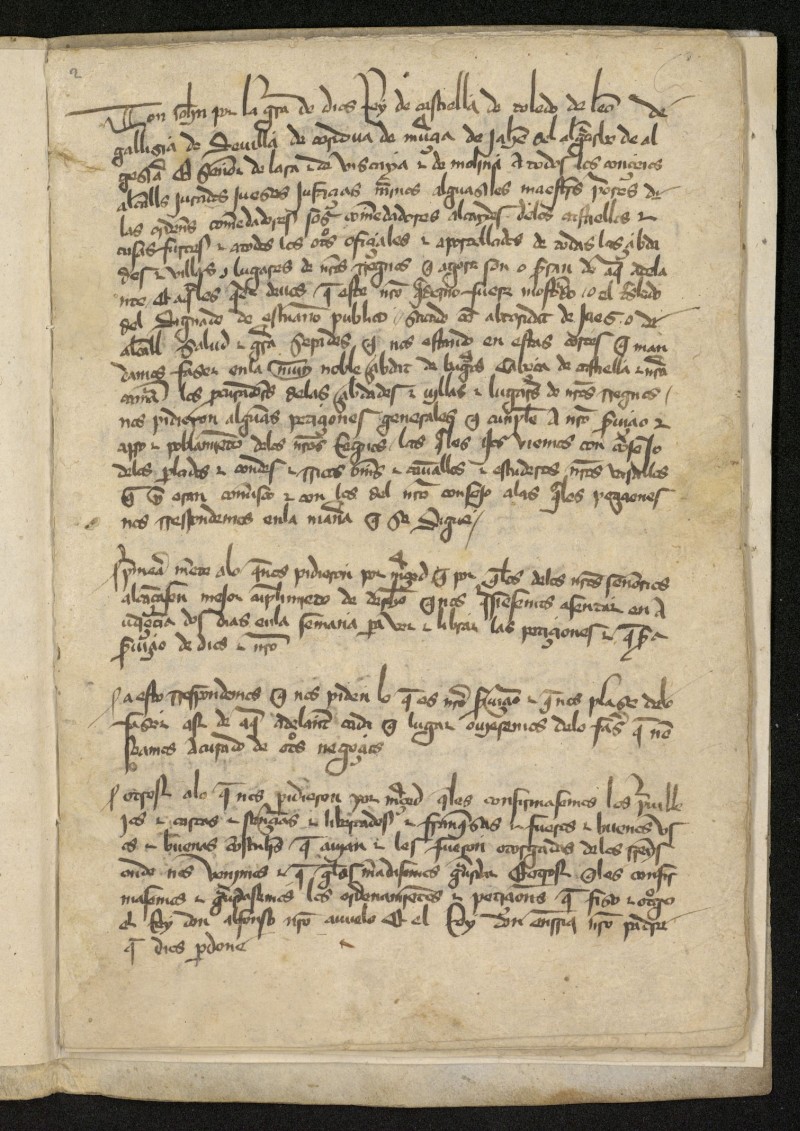 2
Don iohn por la gra de dios Rey de castiella de toledo de leo de
gallizia de Seuilla de cordoua de murçia de Jahen del algarbe de al
gezira Et Sennor de lara e de vizcaya e de molina A todos los conceios
alcalls jurados jueses justicias merinos alguasiles maestres priores de
las ordens comedadores sos comedadores alcaydes delos castiellos e
casas fuertes e atodos los otos ofiçiales e aportellados de todas las çibda
des e villas e lugares de nros rregnos q agora son o seran de aq adela
nte Et aqles q este nro qderno fuere mostrdo o el tsledo
del signado de escriuano publico sacado co abtoridat de jues o de
alcall Salud e gra Sepades q nos estando en estas cortes q man
damos faser enla muy noble çibdat de burgos cabeça de castiella e nra
camra los procuradors delas çibdades e villas e lugares de nros rregnos
nos pidieron algunas petiçiones generales q cunplie A nro seruiçio e
apro e poblamieto delos nros Regnos las qles nos viemos con cosejo
delos perlados e condes e rricos oms e caualls e escuderos nros vasallos
q y eran connusco e con los del nro consejo alas qles petiçiones
nos rrespondemos enla manra q se sigue
Primera mete alo q nos pidieron por mrçed q por qlos delos nros sennorios
alcançasen mejor cunplimieto de derecho q nos quisiesemos asentar en A
udiençia dos dias enla semana pa ver e librar las petiçiones e q pa
seruiçio de dios e nro
a esto rrespondemos q nos piden lo q es nro seruiçio e q nos plase delo
faser asi de aq adelante cada q lugar ouiesemos delo far q no
seamos acupado de otos negoçios
otrosi alo q nos pidieron por mrçed q les confirmasemos los priuille
jos e cartas e sentençias e libertades e franqsas e fueros e buenos vs
os e buenas costunbrs q auian e les fueron otorgadas delos rreys
onde nos venimos e q glos mandasemos guardar Et otrosi q les confir
masemos e guardasemos los ordenamientos e petiçions q fiso e otogo
el Rey don alfonso nro auuelo Et el Rey don enrriq nro padre
q dios perdone